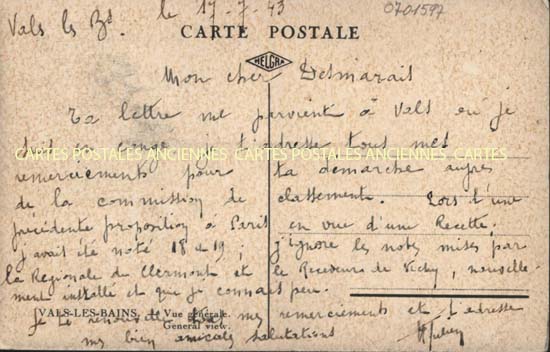 Vals les Bs. le 17-7-43
0701597
CARTE POSTALE
HELGRA
Mon cher Desmarais
Ta lettre me parvient à Vals où je
suis en congé, je t'adresse tous mes
CARTES POSTALES ANCIENNES CARTES POSTALES ANCIENNES CARTES
remerciements pour ta démarche auprès
de la commission de classement. Lors d'une
précédente proposition à Paris en vue d'une Recette,
j'avait été noté 18 et 19 ; j'ignore les notes mises par
la Régionale de Clermont et le Receveurs de Vichy, nouvelle-
ment installé et que je connais peu.
VALS-LES-BAINS. Vue générale.
General view.
Je te renouvelle mes remerciements et t'adresse
mes bien amicales salutations